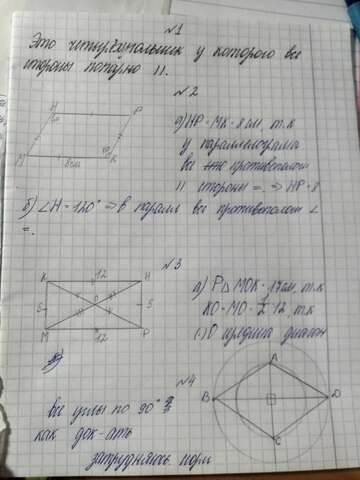 №1
Это четырёхугольник у которого все
стороны попарно ||.
№2
Н
Р
М
К
8см
а) НР = МК = 8 см, т.к
у параллелограма
все противополож
|| стороны =. ⇒ НР = 8
б) ∠Н = 120° ⇒ в паралл все противополож ∠
=.
№3
К
12
Н
5
О
5
М
12
Р
а) Р△ МОК = 17см, т.к
КО = МО = 12, т.к
О средина диагон
№4
А
В
D
С
все углы по 90°
как док-ать
затрудняюсь